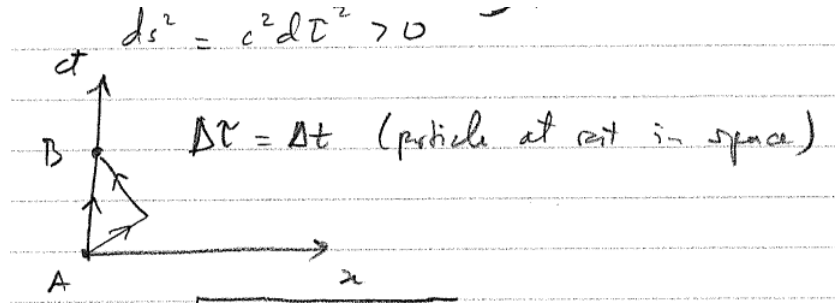 ds² = c²dτ² > 0
ct
B
Δτ = Δt (particle at rest in space)
A
x